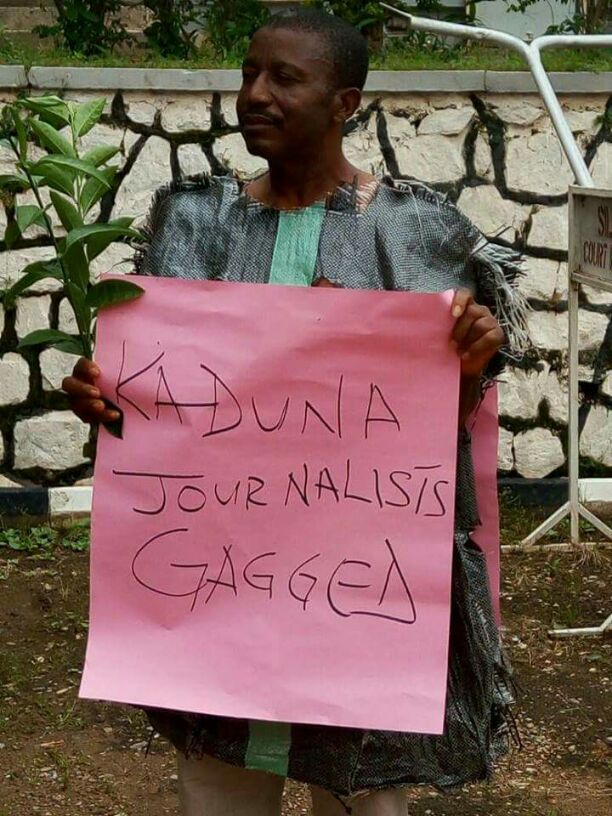 KADUNA
JOURNALISTS
GAGGED
COURT